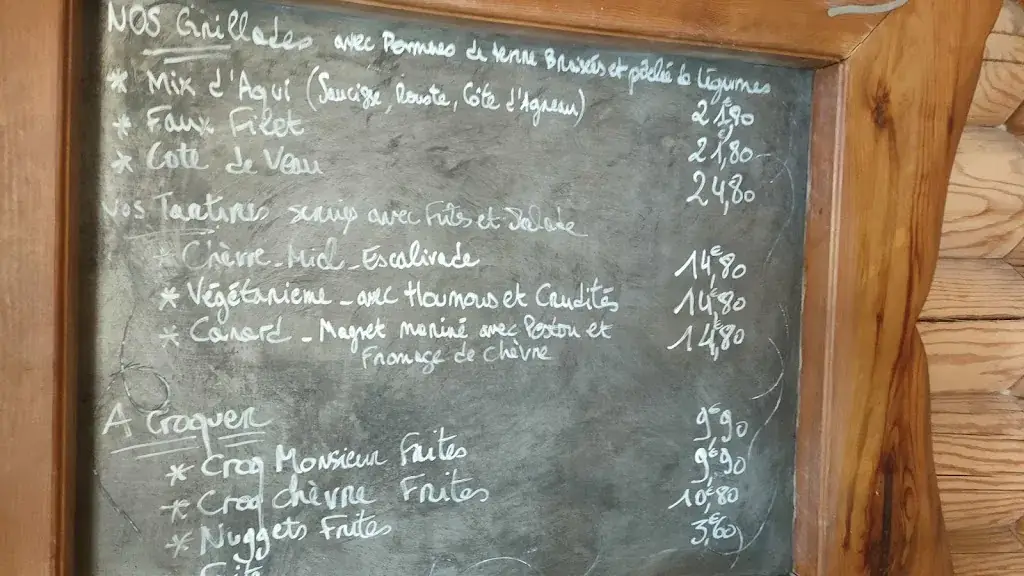 NOS Grillades avec Pommes de terre Braisées et poêlée de Légumes
* Mix d'Aqui (Saucisse, Rouste, Côte d'Agneau) 21€80
* Faux Filet 21,80
* Cote de Veau 24,80
Nos Tartines servis avec Frites et Salade
Chèvre - Miel - Escalivade 14€80
* Végétarienne - avec Houmous et Crudités 14€80
* Canard - Magret mariné avec Pesto et 14€80
Fromage de Chèvre
A Croquer
* Croq Monsieur Frites 9€90
* Croq Chèvre Frites 9€90
* Nuggets Frites 10€80
3€60